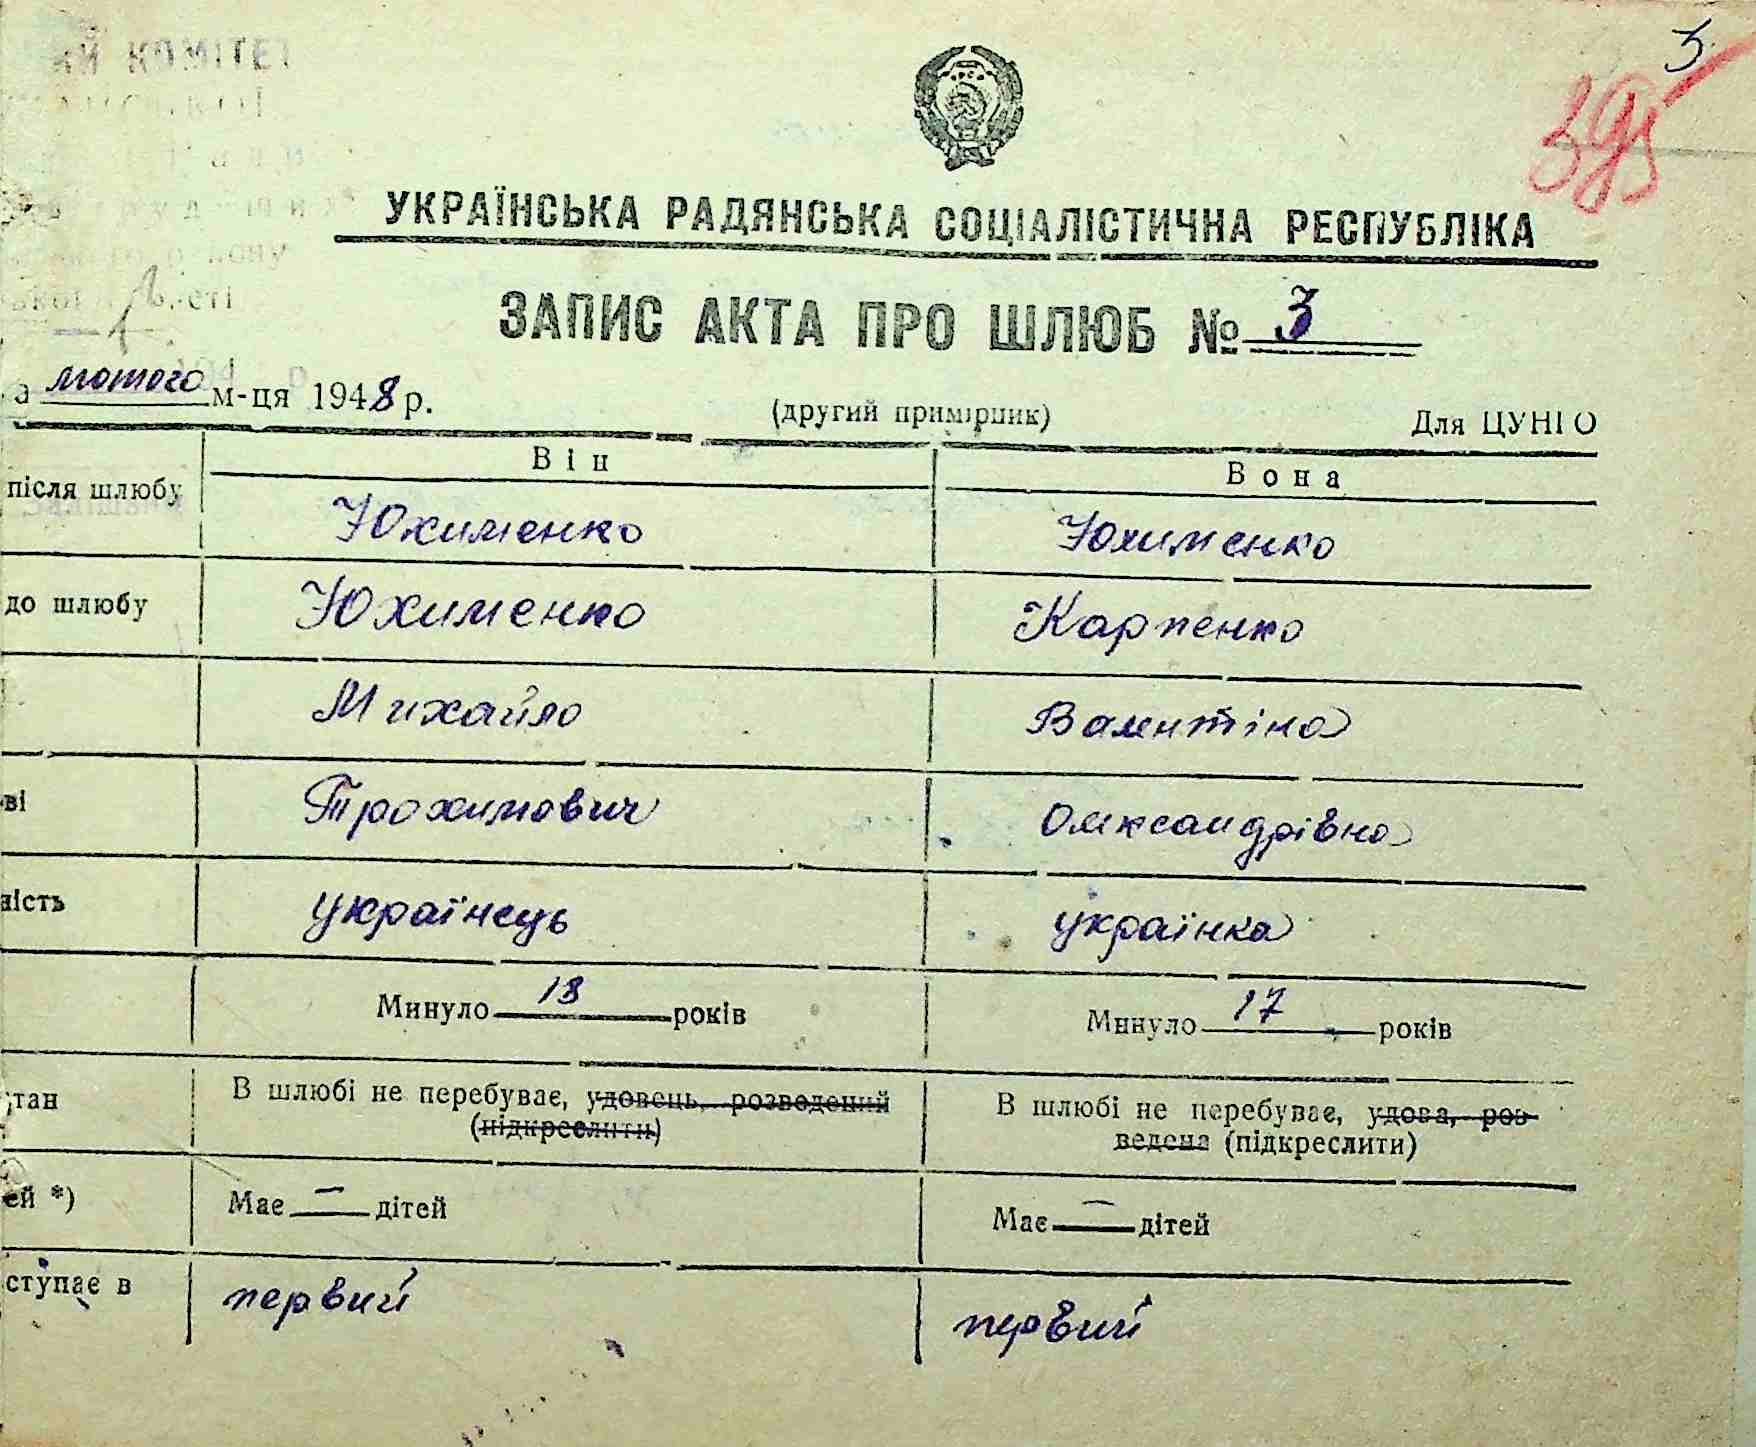 5
395
ИЙ КОМІТЕТ
УКРАЇНСЬКА РАДЯНСЬКА СОЦІАЛІСТИЧНА РЕСПУБЛІКА
ЗАПИС АКТА ПРО ШЛЮБ № 3
а лютого м-ця 1948 р.
(другий примірник) Для ЦУНГО
Він Вона
після шлюбу Юхименко Юхименко
до шлюбу Юхименко Карпенко
Михайло Валентіна
ві Трохимович Олександрівна
ність українець українка
Минуло 18 років Минуло 17 років
тан В шлюбі не перебуває, удовець, розведений В шлюбі не перебуває, удова, роз-
(підкреслити) ведена (підкреслити)
ей *) Має — дітей Має — дітей
ступає в первий первий